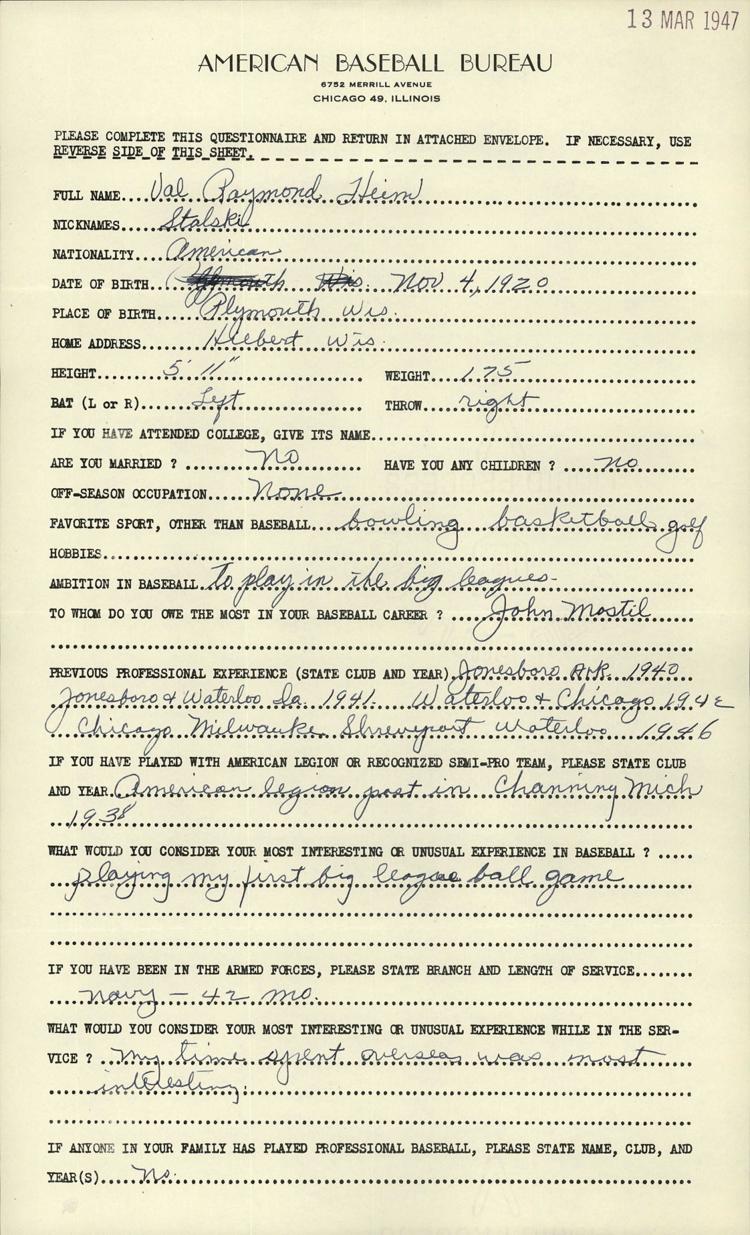 13 MAR 1947
AMERICAN BASEBALL BUREAU
6752 MERRILL AVENUE
CHICAGO 49, ILLINOIS
PLEASE COMPLETE THIS QUESTIONNAIRE AND RETURN IN ATTACHED ENVELOPE. IF NECESSARY, USE
REVERSE SIDE OF THIS SHEET.
FULL NAME....Val Raymond Heim
NICKNAMES.....Stalski
NATIONALITY....American
DATE OF BIRTH Plymouth Wis. Nov 4, 1920
PLACE OF BIRTH....Plymouth Wis.
HOME ADDRESS.......Hilbert Wis.
HEIGHT........5' 11" WEIGHT....175
BAT (L or R)......Left THROW....right
IF YOU HAVE ATTENDED COLLEGE, GIVE ITS NAME
ARE YOU MARRIED ? .......no HAVE YOU ANY CHILDREN ? ....no
OFF-SEASON OCCUPATION.....None
FAVORITE SPORT, OTHER THAN BASEBALL....bowling basketball golf
HOBBIES
AMBITION IN BASEBALL to play in the big leagues.
TO WHOM DO YOU OWE THE MOST IN YOUR BASEBALL CAREER ? ....John Mostil
PREVIOUS PROFESSIONAL EXPERIENCE (STATE CLUB AND YEAR) Jonesboro Ark. 1940
Jonesboro & Waterloo Ia. 1941. Waterloo & Chicago 1942
Chicago Milwaukee Shreveport Waterloo 1946
IF YOU HAVE PLAYED WITH AMERICAN LEGION OR RECOGNIZED SEMI-PRO TEAM, PLEASE STATE CLUB
AND YEAR American legion post in Channing Mich
1938
WHAT WOULD YOU CONSIDER YOUR MOST INTERESTING OR UNUSUAL EXPERIENCE IN BASEBALL ? .....
playing my first big league ball game
IF YOU HAVE BEEN IN THE ARMED FORCES, PLEASE STATE BRANCH AND LENGTH OF SERVICE........
navy - 42 mo.
WHAT WOULD YOU CONSIDER YOUR MOST INTERESTING OR UNUSUAL EXPERIENCE WHILE IN THE SER-
VICE ? ..my time spent overseas was most
interesting.
IF ANYONE IN YOUR FAMILY HAS PLAYED PROFESSIONAL BASEBALL, PLEASE STATE NAME, CLUB, AND
YEAR(S).....no.